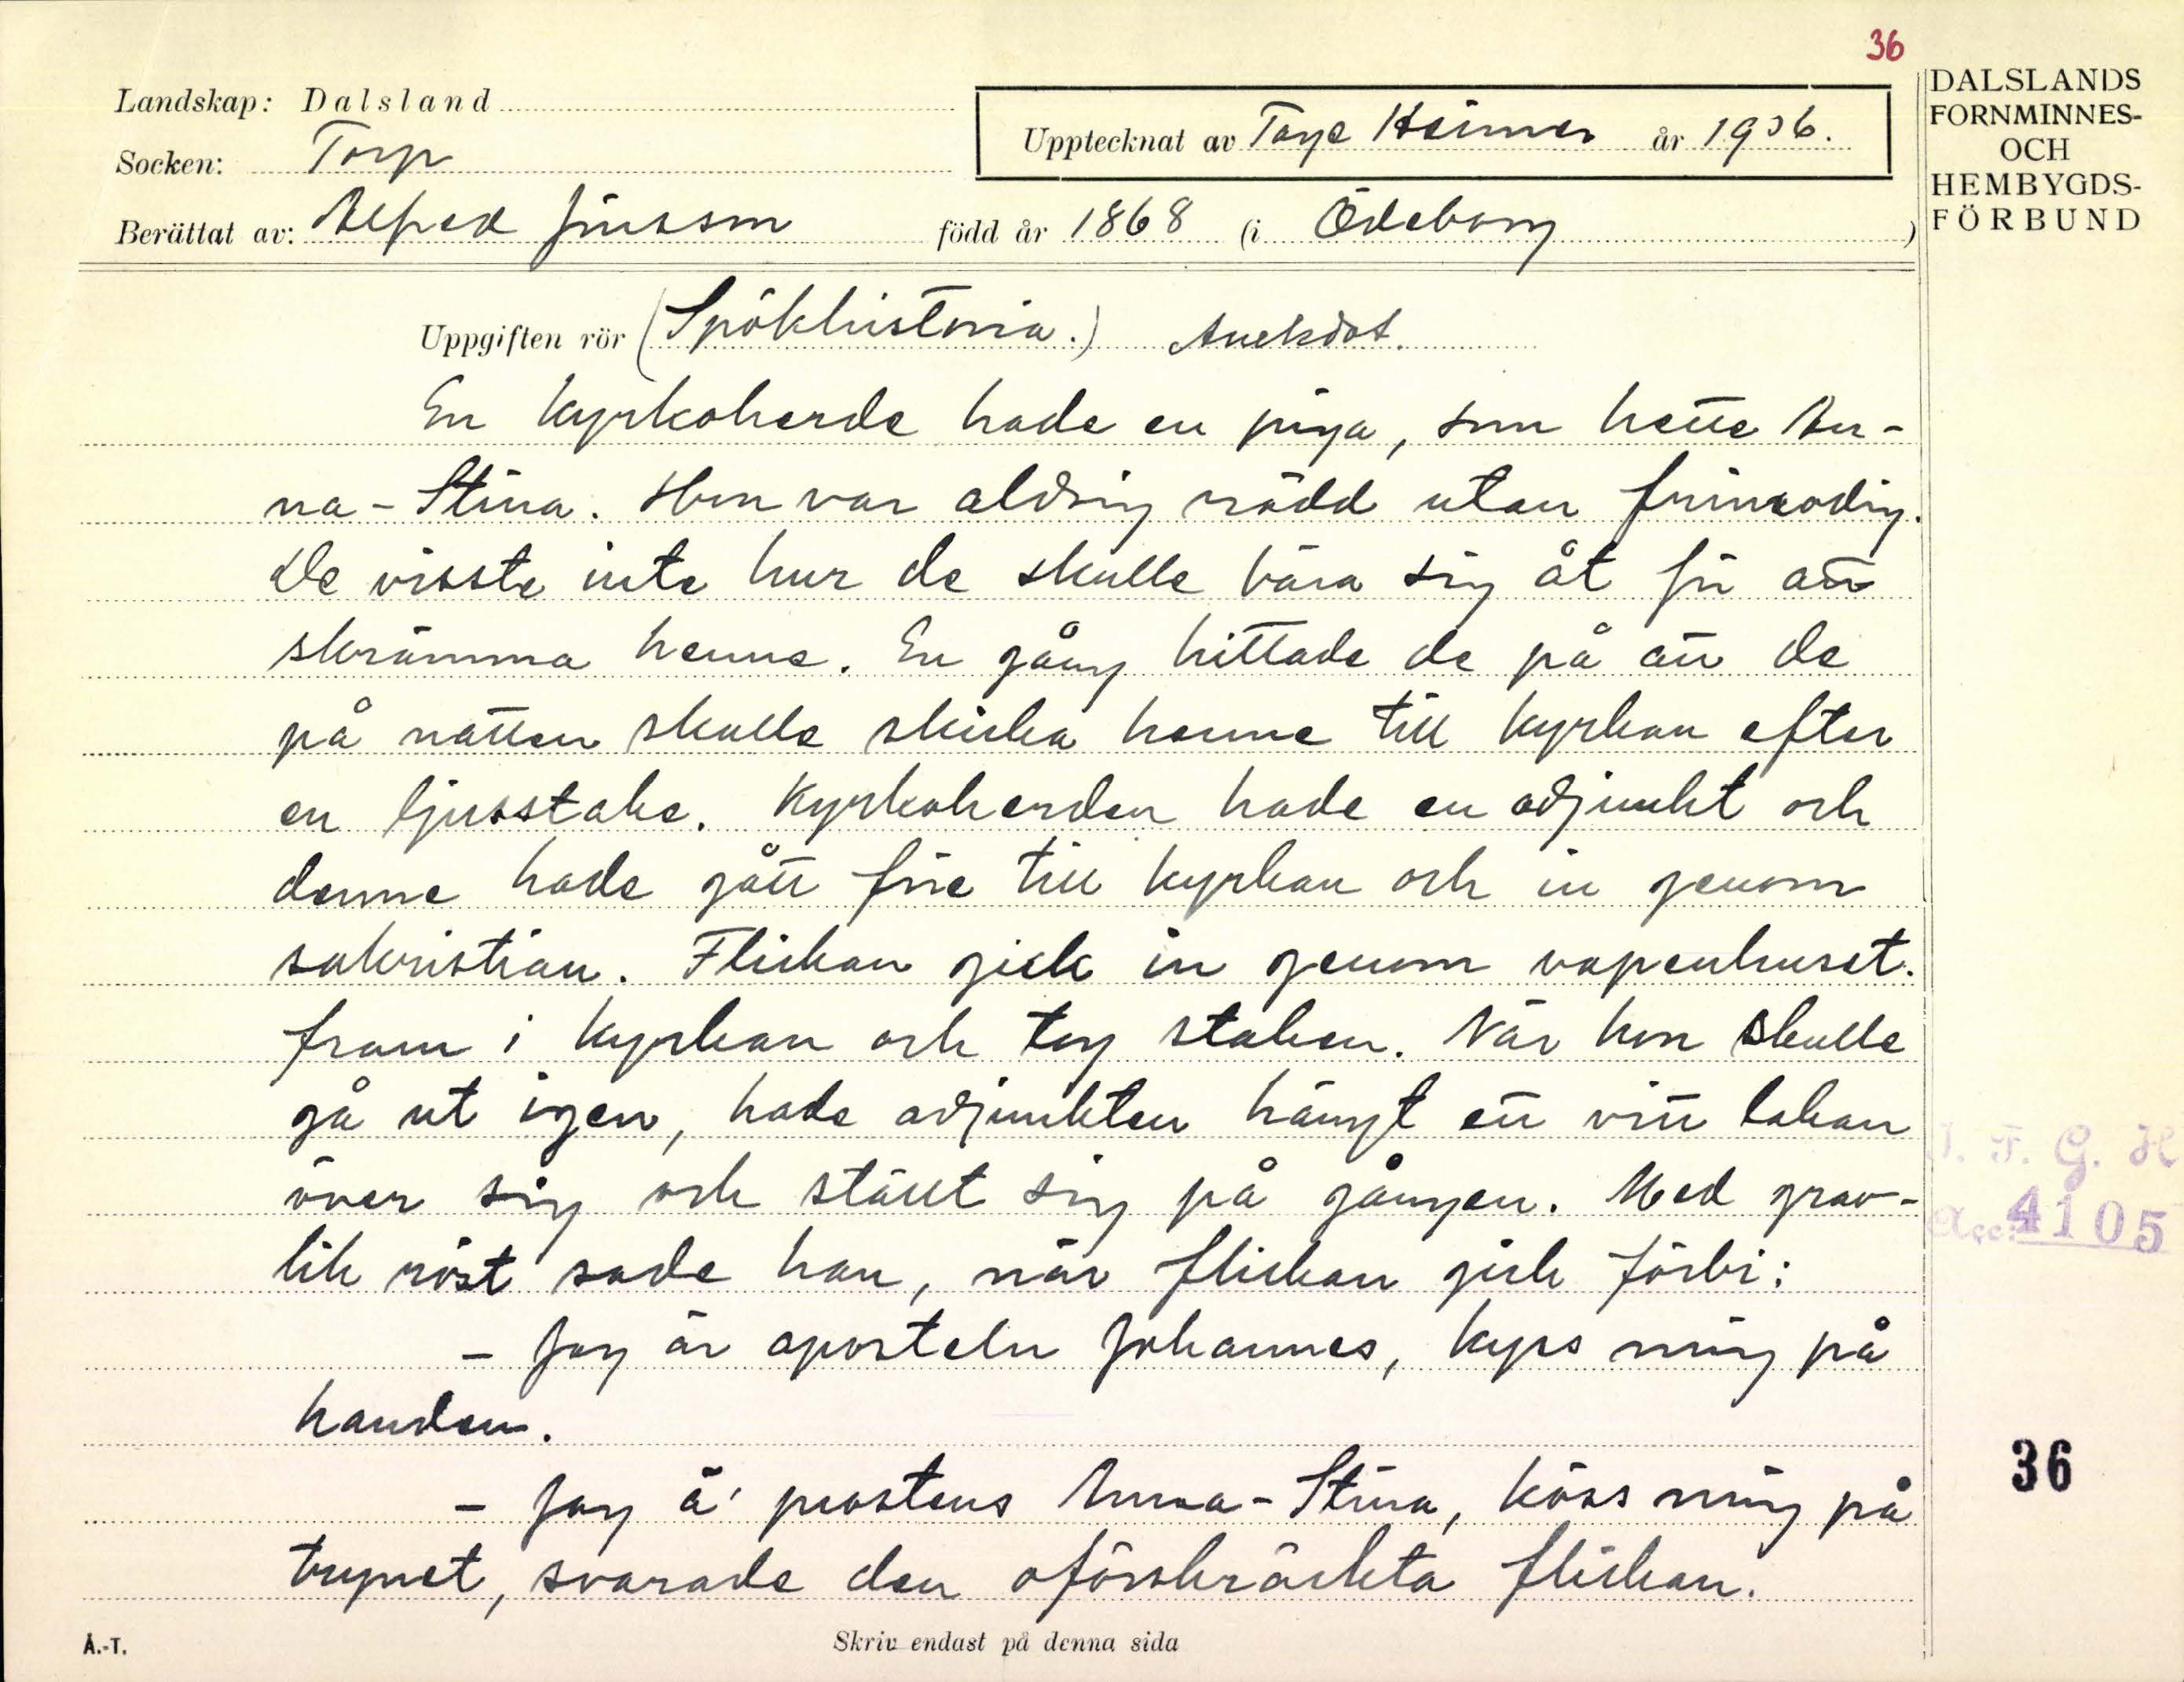 36
Landskap: Dalsland
Upptecknat av Tage Heimer år 1936.
Socken: Torp
Berättat av: Alfred Jönsson född år 1868 (i Ödeborg )
DALSLANDS
FORNMINNES-
OCH
HEMBYGDS-
FÖRBUND
Uppgiften rör (Spökhistoria.) Anekdot.
En kyrkoherde hade en piga, som hette An-
na-Stina. Hon var aldrig rädd utan frimodig.
De visste inte hur de skulle bära sig åt för att
skrämma henne. En gång hittade de på att de
på natten skulle skicka henne till kyrkan efter
en ljusstake. Kyrkoherden hade en adjunkt och
denne hade gått före till kyrkan och in genom
sakristian. Flickan gick in genom vapenhuset.
fram i kyrkan och tog staken. När hon skulle
gå ut igen, hade adjunkten hängt ett vitt lakan
över sig och ställt sig på gången. Med grav-
lik röst sade han, när flickan gick förbi:
- Jag är aposteln Johannes, kyss mig på
handen.
- Jag ä' prostens Anna-Stina, köss mig på
trynet, svarade den oförskräckta flickan.
I. F. G. H
Acc: 4105
36
Å.-T.
Skriv endast på denna sida